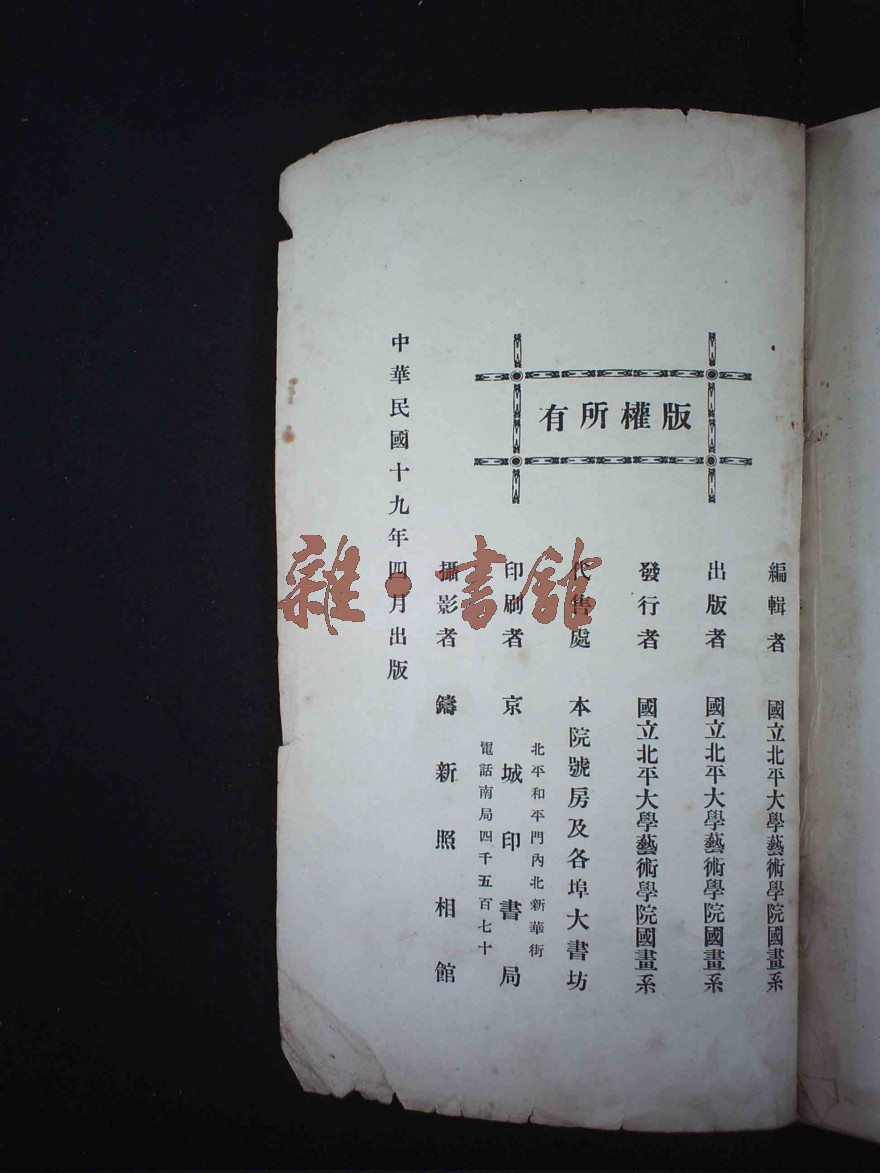 版權所有
編輯者 國立北平大學藝術學院國畫系
出版者 國立北平大學藝術學院國畫系
發行者 國立北平大學藝術學院國畫系
代售處 本院號房及各埠大書坊
北平和平門內北新華街
印刷者 京城印書局
電話南局四千五百七十
攝影者 鑄新照相館
中華民國十九年四月出版
雜·書館